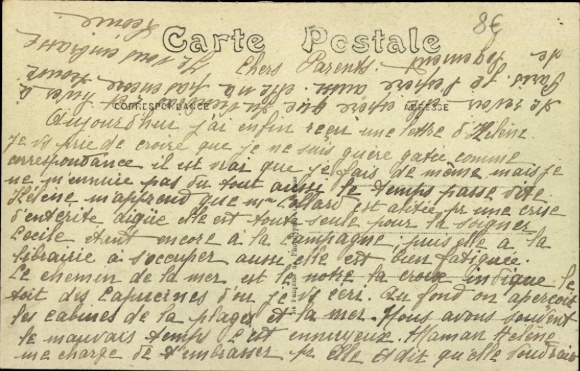 8€
Carte Postale
CORRESPONDANCE
ADRESSE
Chers Parents.
Aujourd'hui j'ai enfin reçu une lettre d'Hélène.
Je vs prie de croire que je ne suis guère gatée comme
correspondance il est vrai que je fais de même mais je
ne m'ennuie pas du tout aussi le temps passe vite.
Hélène m'apprend que Mme est alitée pr une crise
d'entérite elle est toute seule pour la soigner
Cécile étant encore à la campagne, puis elle a la
librairie à s'occuper aussi elle est bien fatiguée.
Le chemin de la mer est le notre la croix indique le
toit des Capucines d'où je vs écri. Au fond on aperçoit
les cabines de la plage et la mer. Nous avons souvent
le mauvais temps c'est ennuyeux. Maman Hélène
me charge de t'embrasser pr elle et dit qu'elle voudrait
de revoir
Je vous embrasse